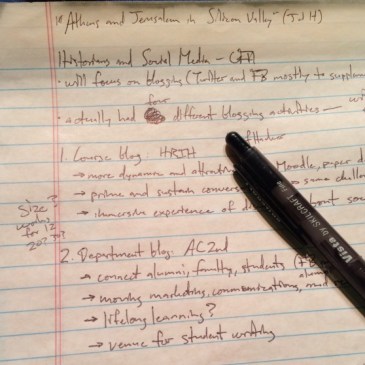 "Athens and Jerusalem in Silicon Valley" (TJH)
Historians and Social Media -
· will focus on blogging (Twitter and FB mostly to supplement
four
· actually had different blogging activities —
1. Course blog: HRJH
→ more dynamic and attractive Moodle,
→ prime and sustain some
→ immersive experience of
Size?
works
for 12
20?
2. Department blog: AC2nd
→ connect alumni, faculty, students
→ moving marketing, communications,
→ lifelong learning?
→ venue for student writing
Vista BY SKILCRAFT